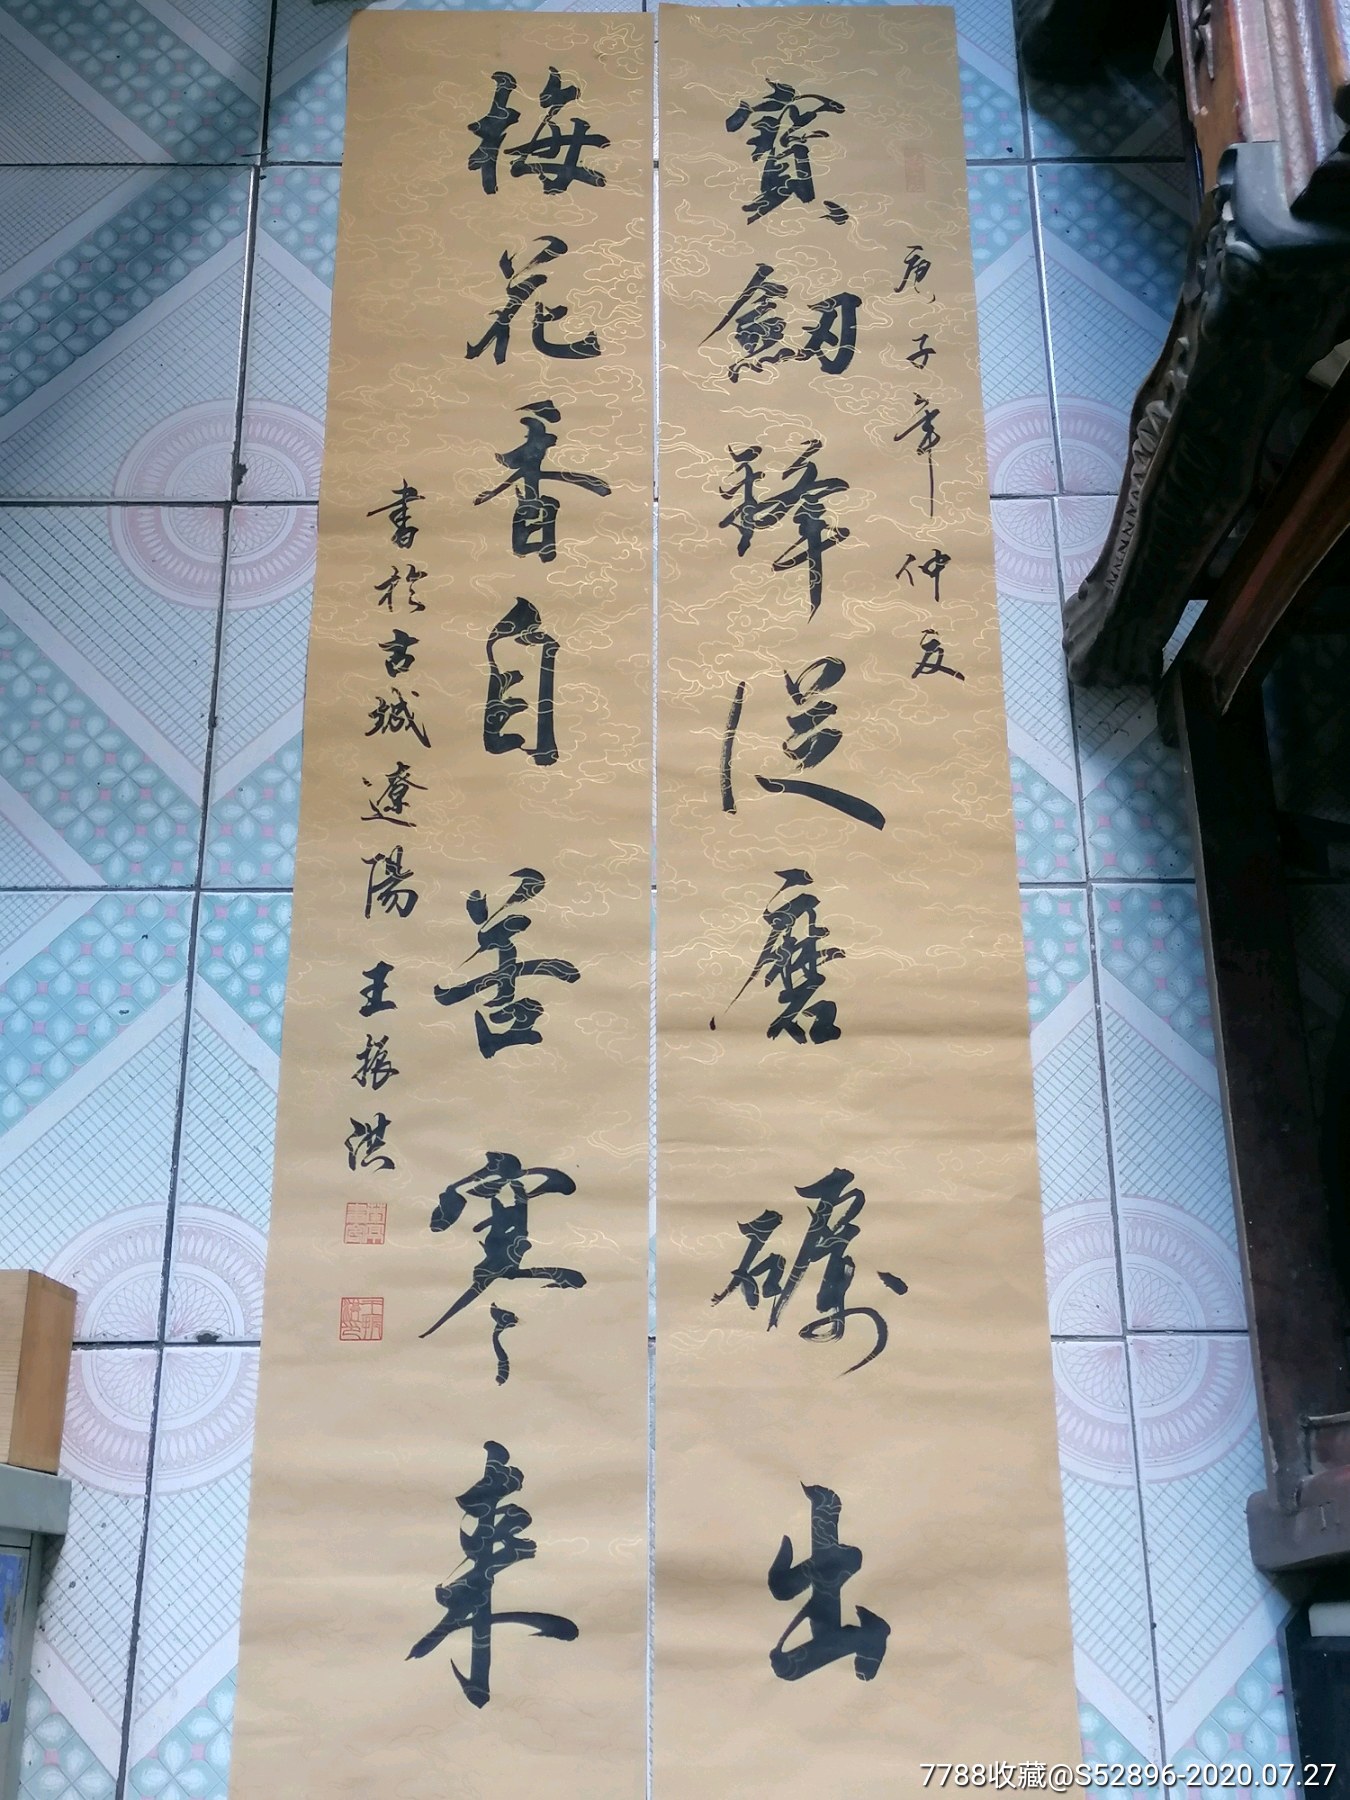 庚子年仲夏
寶劎鋒從磨礪出
梅花香自苦寒来
書於古城遼陽王振洪
7788收藏@S52896-2020.07.27